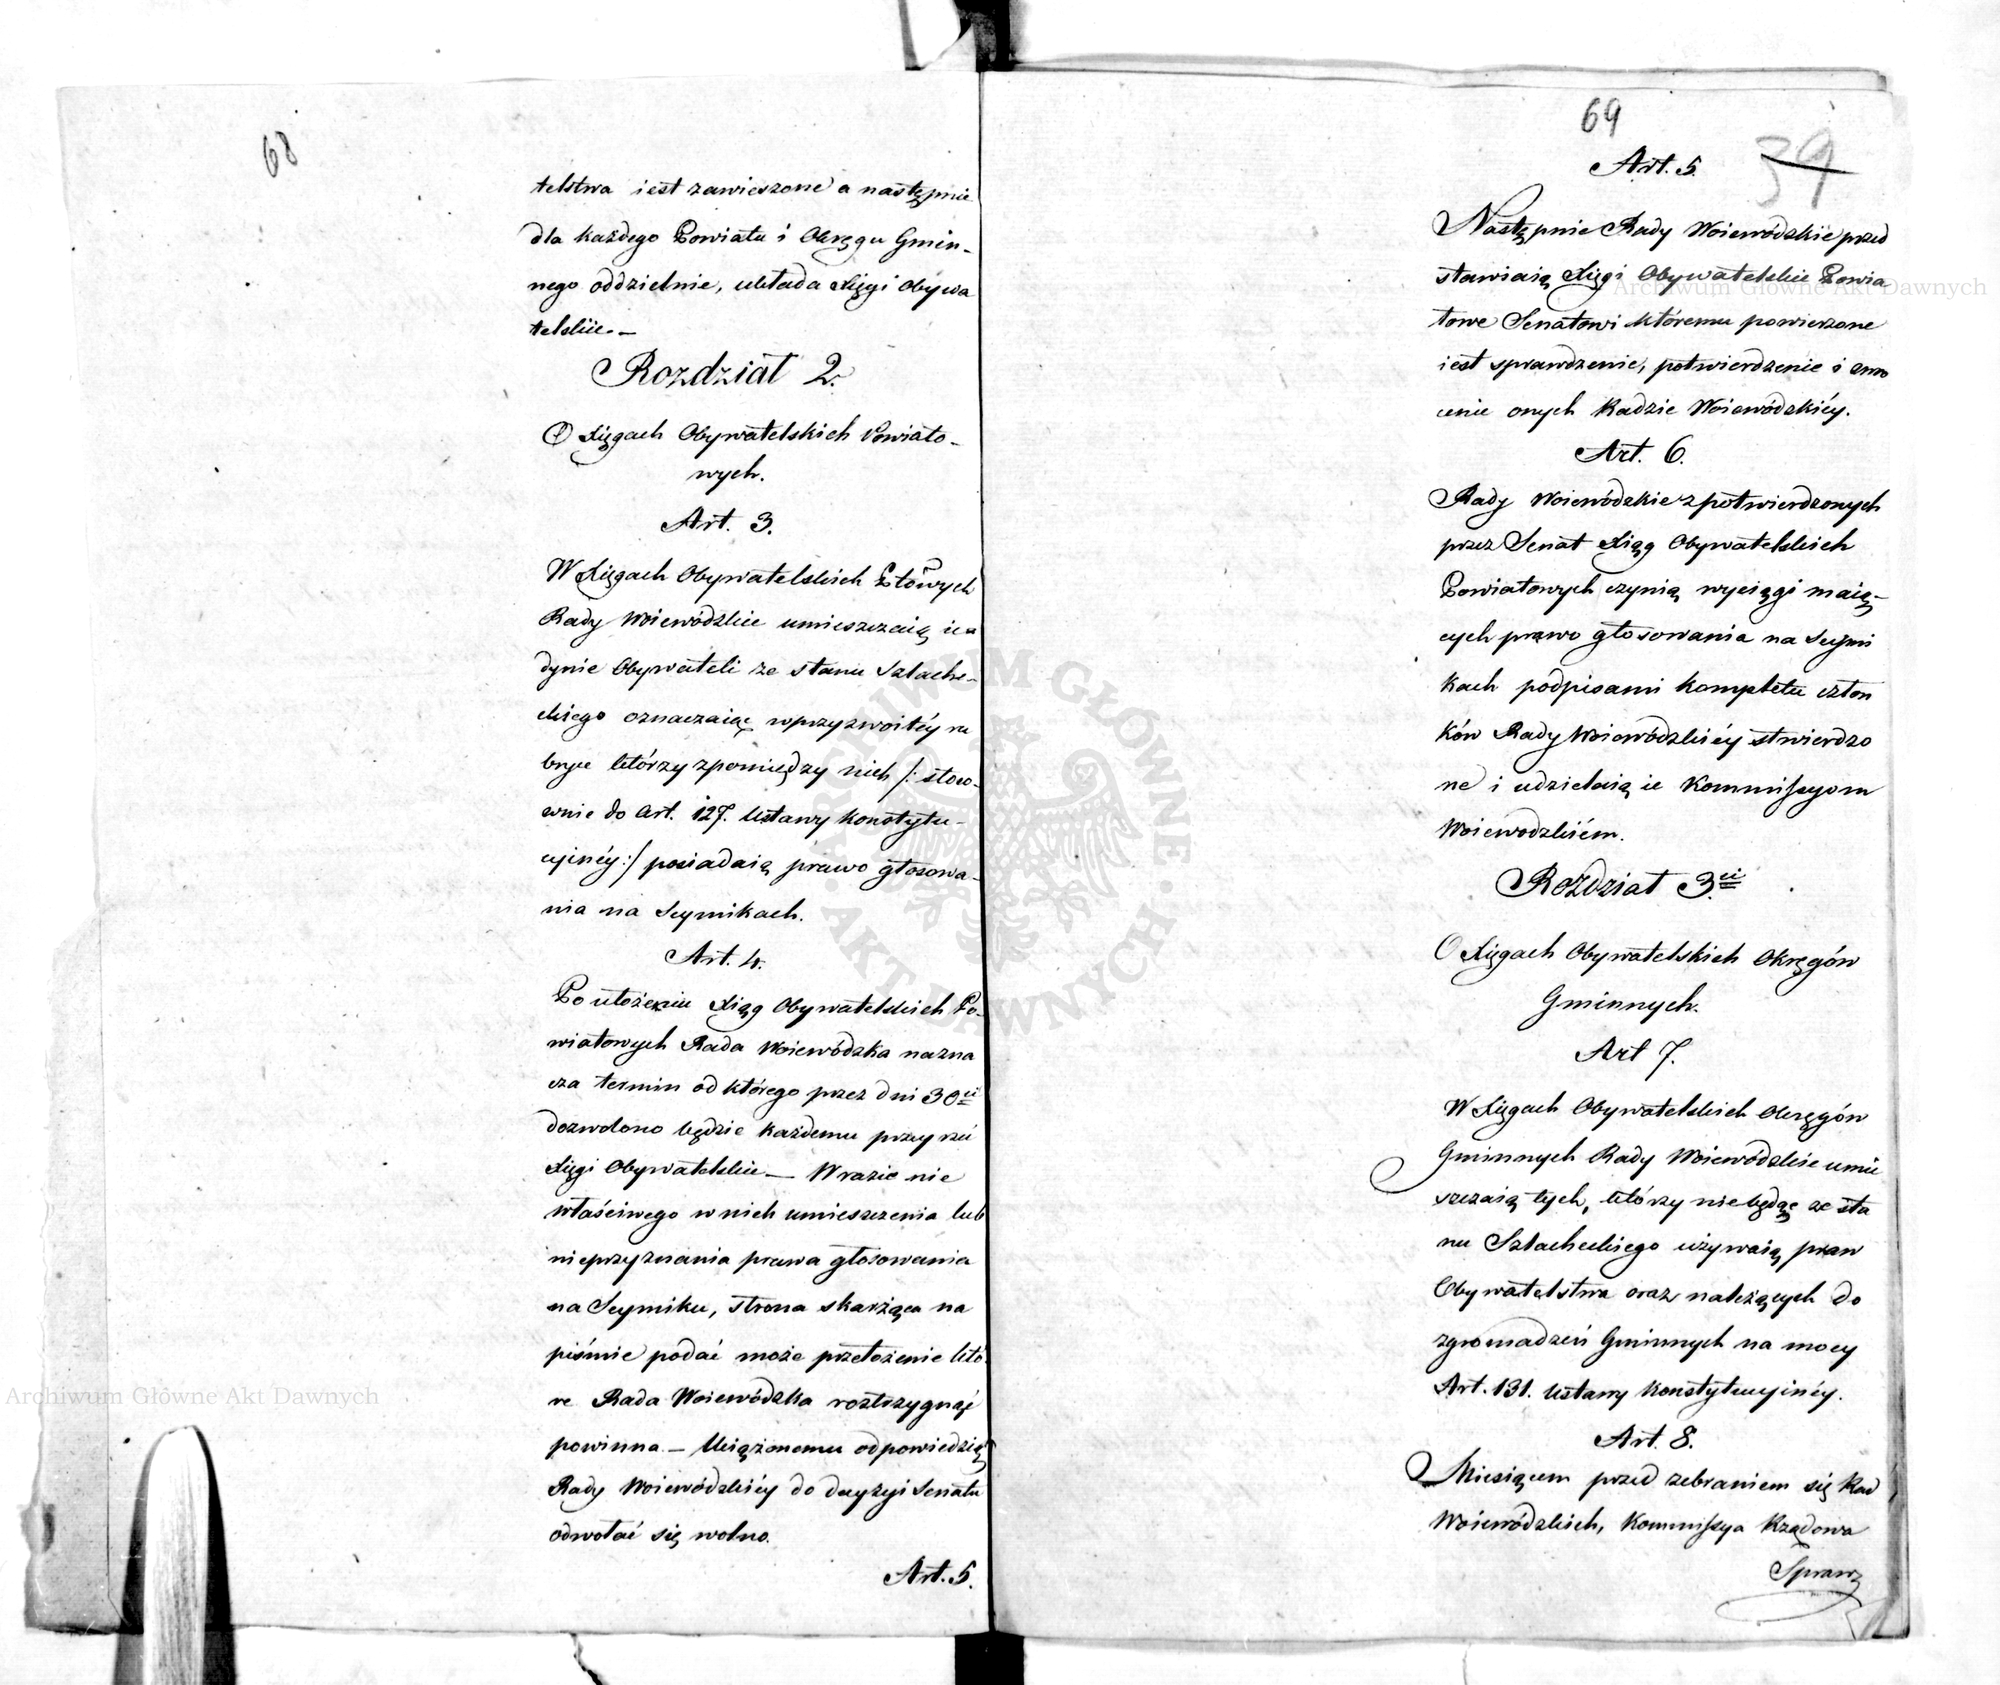 68
telstwa iest zawieszone a następnie
dla każdego Powiatu i Okręgu Gmin-
nego oddzielnie, układa Xięgi Obywa
telskie.—
Rozdział 2.
O Xięgach Obywatelskich Powiato-
wych.
Art. 3.
W Xięgach Obywatelskich Ptowych
Rady Woiewódzkie umieszczaią ie-
dynie Obywateli ze stanu Szlache-
ckiego oznaczaiąc w przyzwoitéy ru
bryce którzy zpomiędzy nich /: stoso-
wnie do Art. 127. Ustawy Konstytu-
cyinéy :/ posiadaią prawo głosowa-
nia na Seymikach.
Art. 4.
Po ułożeniu Xiąg Obywatelskich Po-
wiatowych Rada Woiewódzka nazna
cza termin od którego przez dni 30ci
dozwolono będzie każdemu przeyrzeć
Xięgi Obywatelskie — W razie nie
właściwego w nich umieszczenia lub
nieprzyznania prawa głosowania
na Seymiku, strona skarżąca na
piśmie podać może przełożenie któ-
re Rada Woiewódzka roztrzygnąć
powinna. — Uciążonemu odpowiedzią
Rady Woiewódzkiéy do decyzyi Senatu
odwołać się wolno.
Art. 5.
69
39
Art. 5.
Następnie Rady Woiewódzkie przed
stawiaią Xięgi Obywatelskie Powia
towe Senatowi któremu powierzone
iest sprawdzenie, potwierdzenie i zwró
cenie onych Radzie Woiewódzkiéy.
Art. 6.
Rady Woiewódzkie z potwierdzonych
przez Senat Xiąg Obywatelskich
Powiatowych czynią wyciągi maią-
cych prawo głosowania na Seymi
kach podpisami kompletu człon
ków Rady Woiewódzkiéy stwierdzo
ne i udzielaią ie Kommissyom
Woiewodzkiém.
Rozdział 3ci
O Xięgach Obywatelskich Okręgów
Gminnych.
Art 7.
W Xięgach Obywatelskich Okręgów
Gminnych Rady Woiewódzkie umie
szczaią tych, którzy nie będąc ze sta
nu Szlacheckiego używaią praw
Obywatelstwa oraz należących do
zgromadzeń Gminnych na mocy
Art. 131. Ustawy Konstytucyinéy.
Art. 8.
Miesiącem przed zebraniem się Rad
Woiewódzkich, Kommissya Rządowa
Spraw
Archiwum Główne Akt Dawnych
Archiwum Główne Akt Dawnych
ARCHIWUM GŁÓWNE · AKT DAWNYCH ·